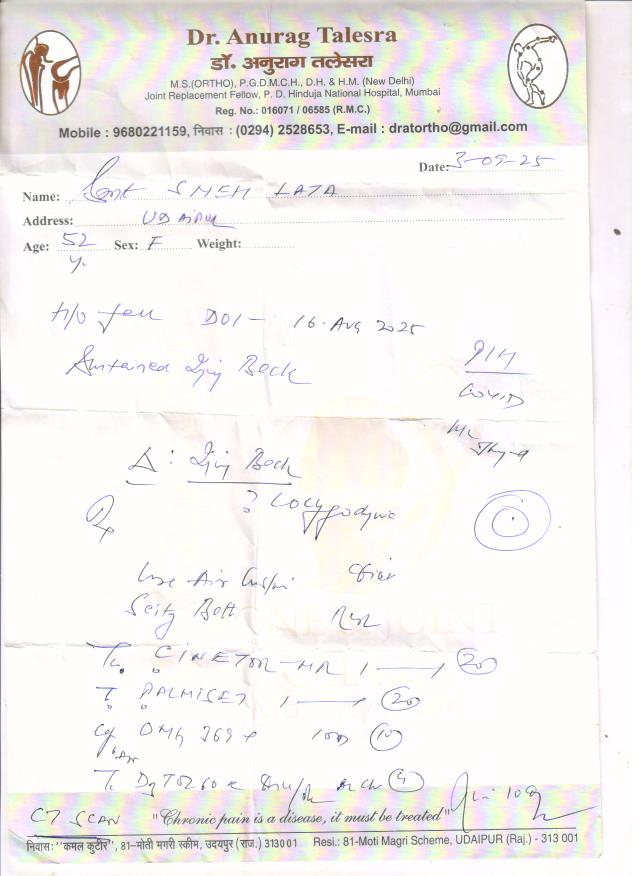 Dr. Anurag Talesra
डॉ. अनुराग तलेसरा
M.S.(ORTHO), P.G.D.M.C.H., D.H. & H.M. (New Delhi)
Joint Replacement Fellow, P. D. Hinduja National Hospital, Mumbai
Reg. No.: 016071 / 06585 (R.M.C.)
Mobile : 9680221159, निवास : (0294) 2528653, E-mail : dratortho@gmail.com
Date: 3-09-25
Name: Smt SNEH LATA
Address: UDAIPUR
Age: 52 y. Sex: F Weight:
H/O fall DOI - 16 Aug 2025
Sustained Injury Back
COVID
Δ: Injury Back
? Coccygodynia
Rx
Use Air Cushion
Seitz Bath
T. CINETOR-MR 1 20
T. PALMISET 1 20
OMG 369 10
CT SCAN
"Chronic pain is a disease, it must be treated"
निवास: "कमल कुटीर", 81-मोती मगरी स्कीम, उदयपुर (राज.) 313001 Resi.: 81-Moti Magri Scheme, UDAIPUR (Raj.) - 313 001